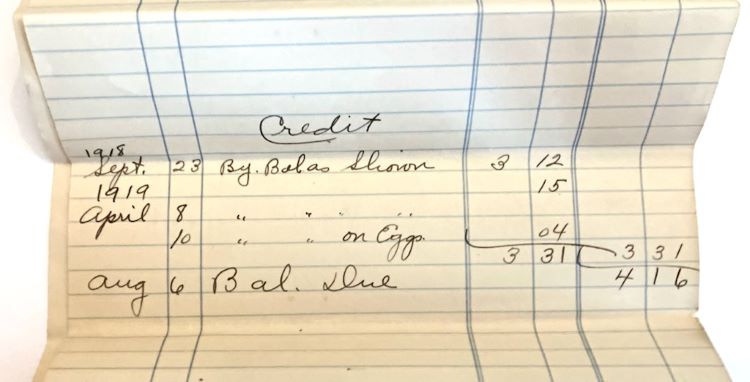 Credit
1918
Sept. 23 By. Bal as Shown 3 12
1919 15
April 8 " " "
10 " " on Eggs. 04
3 31 3 31
Aug 6 Bal. Due 4 16